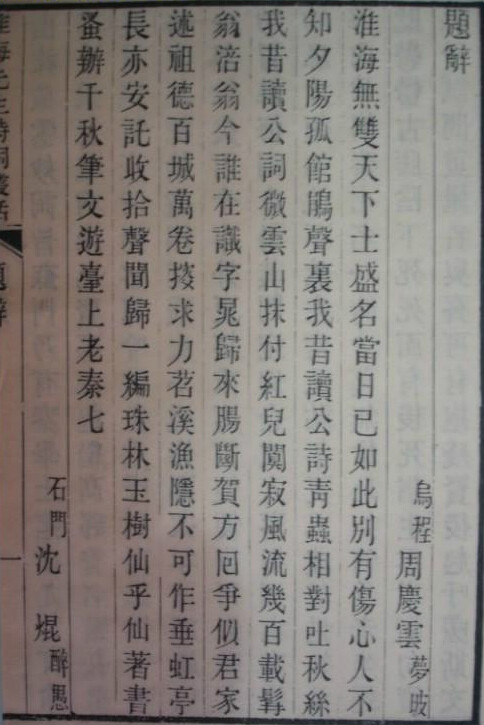 題辭
烏程周慶雲夢坡
淮海無雙天下士盛名當日已如此別有傷心人不
知夕陽孤館鵑聲裏我昔讀公詩青蟲相對吐秋絲
我昔讀公詞微雲山抹付紅兒闃寂風流幾百載髯
翁涪翁今誰在識字晁歸來腸斷賀方回爭似君家
述祖德百城萬卷搜求力苕溪漁隱不可作垂虹亭
長亦安託收拾聲聞歸一編珠林玉樹仙乎仙著書
蚤辦千秋筆文遊臺上老秦七
石門沈焜醉愚
淮海先生詩詞叢話
題辭
一